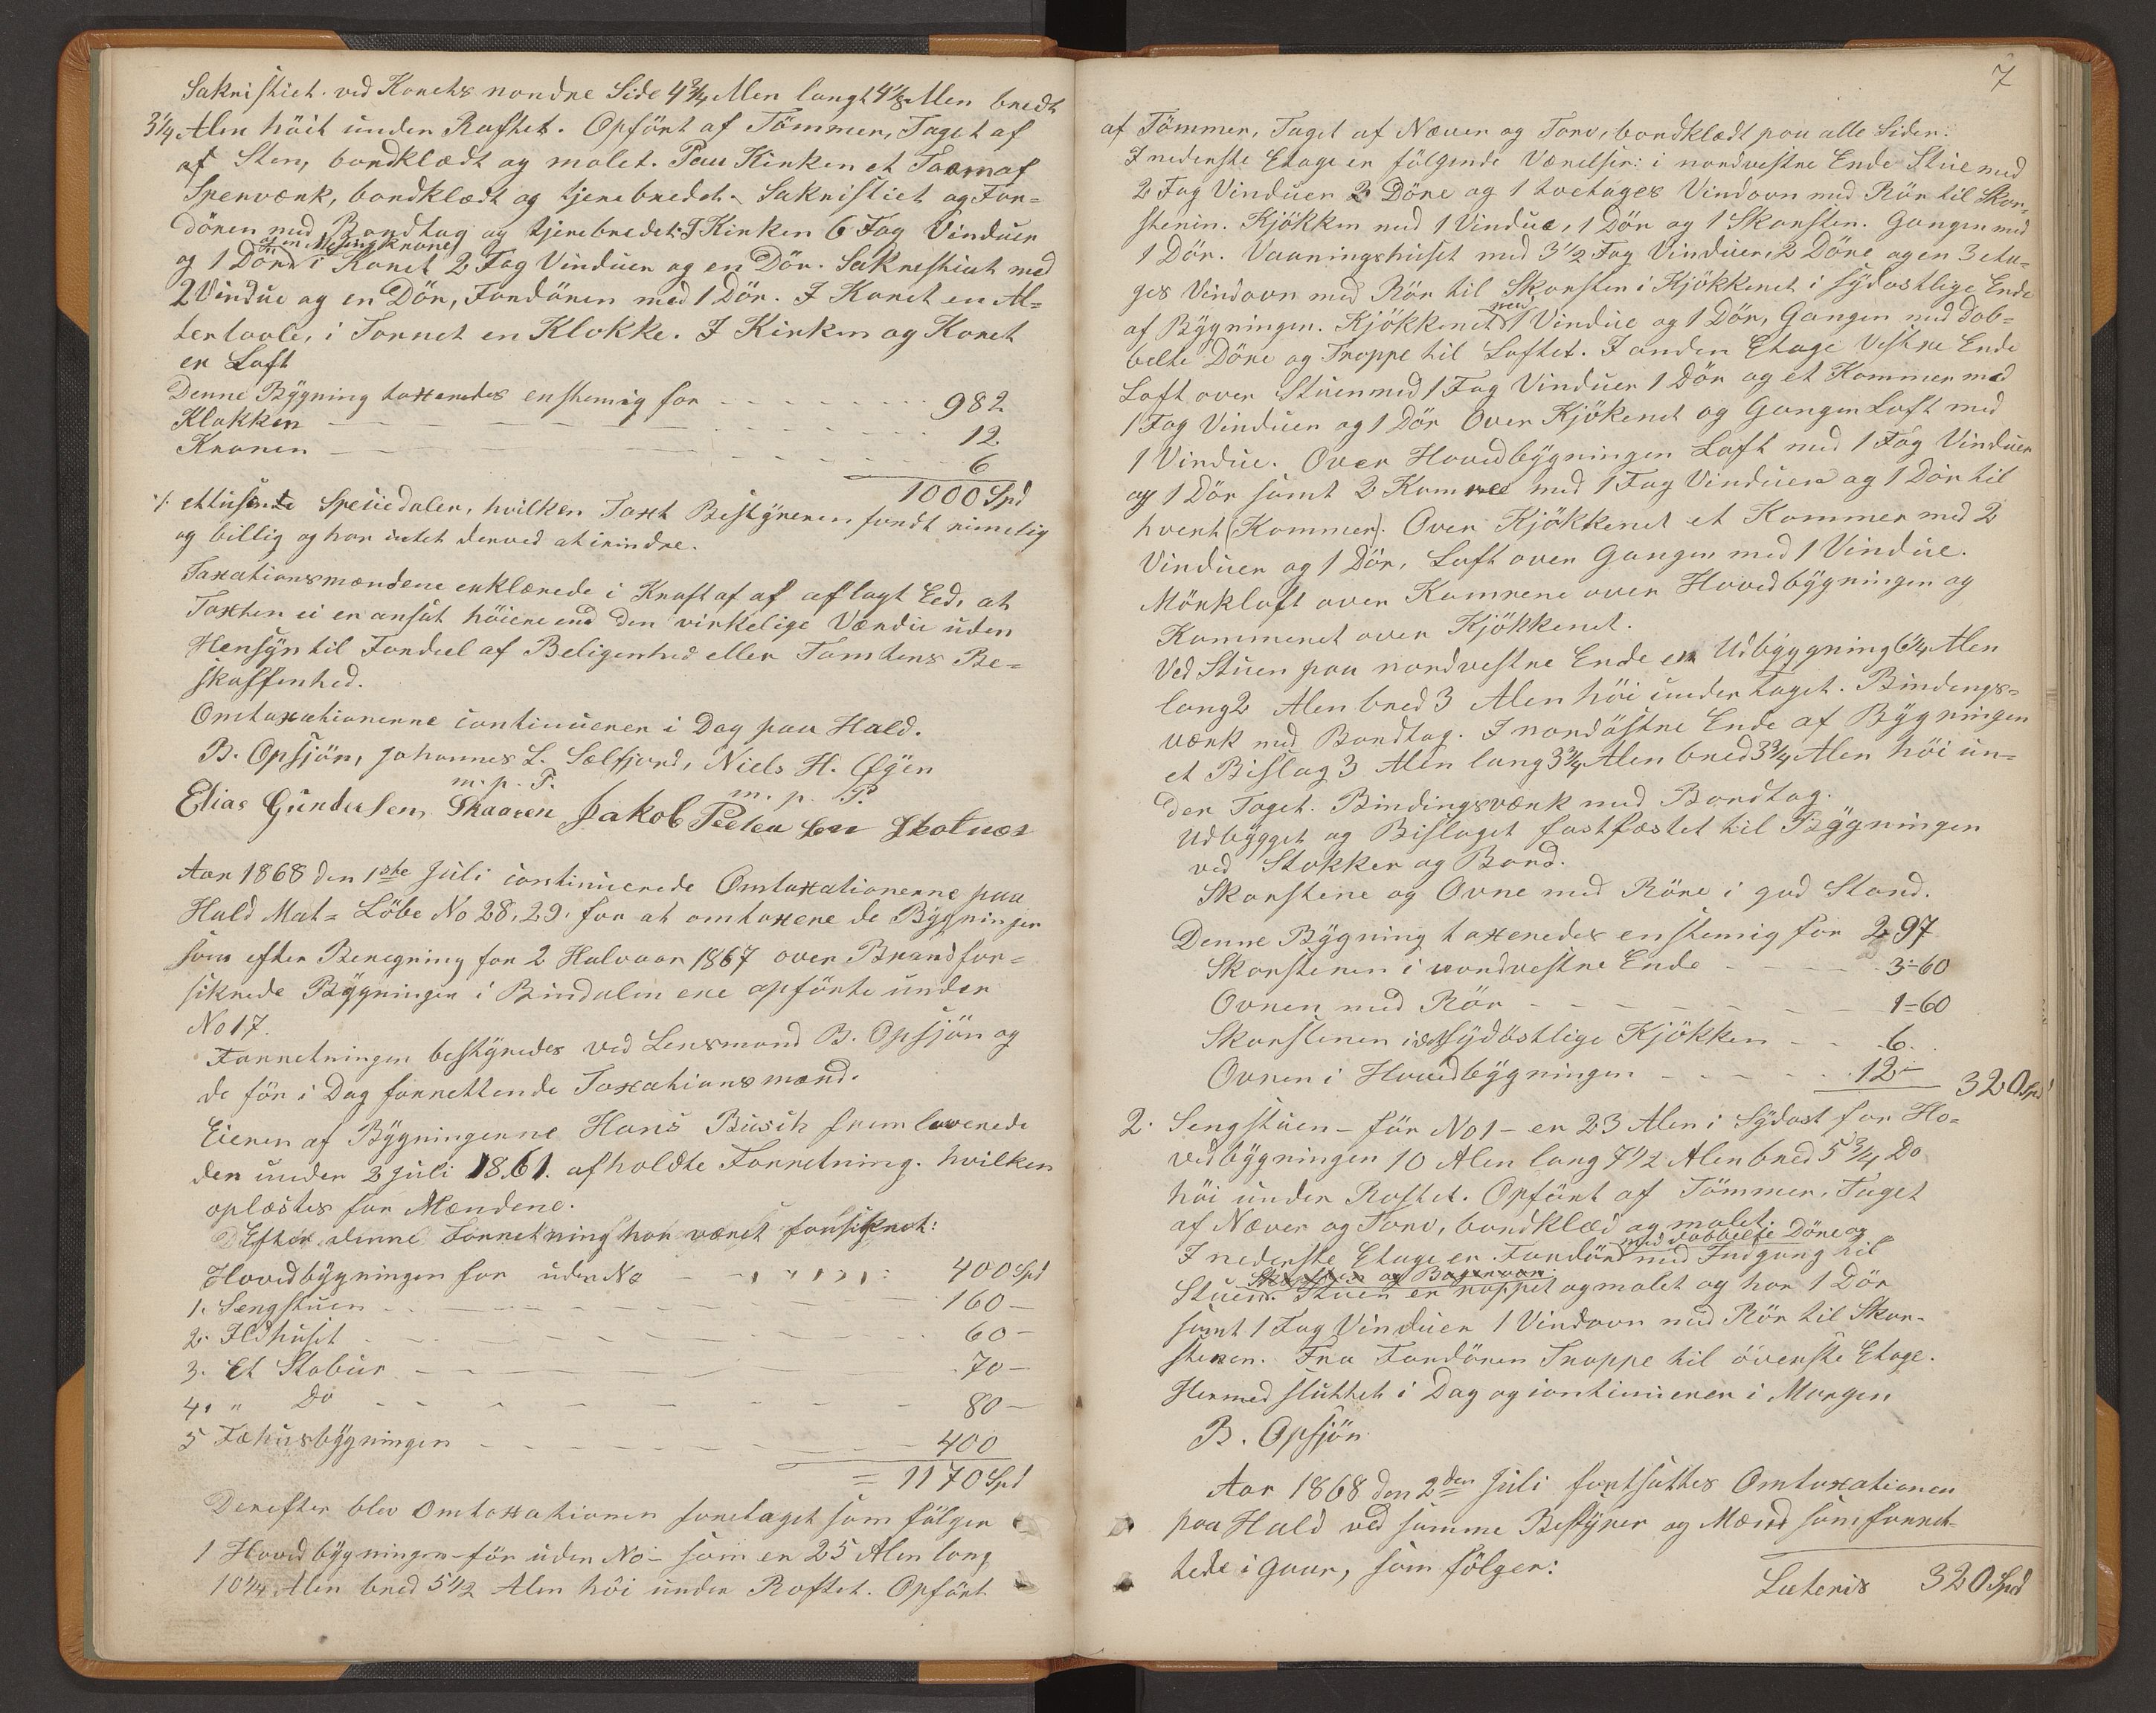 Sakristiet ved Korets nordre Side 4 3/4 Alen langt 4 1/8 Alen bredt
3 1/4 Alen höit under Raftet. Opfört af Tömmer, Taget af
af Sten, bordklædt og malet. Paa Kirken et Taarn af
Sperværk, bordklædt og tjærebredet. Sakristiet og For=
dören med Bordtag og tjerebredet. I Kirken 6 Fag Vinduer
og en Mesing Krone
og 1 Dör i Koret 2 Fag Vinduer og en Dör. Sakrestiet med
2 Vindue og en Dör, Fordören med 1 Dör. I Koret en Al=
tertavle, i Tornet en Klokke. I Kirken og Koret
er Loft
Denne Bygning taxeredes enstemig for 982
Klokken 12
Kronen 6
1000 Spd
/: ettusinde Speciedaler, hvilken Taxt Bestyreren fandt rimelig
og billig og har intet derved at erindre.
Taxationsmændene erklærede i Kraft af af aflagt Eed, at
Taxten ei er ansat höiere end den virkelige Værdie uden
Hensyn til Fordeel af Beligenhed eller Tomtens Be=
skaffenhed.
Omtaxationerne continuerer i Dag paa Hald.
B. Opsjön, Johannes L. Sælfjord, Niels H. Øyen
m. p. P. m. p. P.
Elias Gundersen Skaaren Jakob Peter sen Skotnæs
Aar 1868 den 1ste Juli continuerede Omtaxationerne paa
Hald Mat= Löbe No 28, 29. for at omtaxere de Bygninger
som efter Beregning for 2 Halvaar 1867 over Brandfor=
sikrede Bygninger i Bindalen ere opförte under
No 17.
Forretningen bestyredes ved Lensmand B. Opsjön og
de för i Dag forrettende Taxationsmænd.
Eieren af Bygningerne Hans Busch fremlaverede
den under 2 Juli 1861. afholdte Forretning. hvilken
oplæstes for Mændene.
Efter denne Forretning har været forsikret:
Hovedbygningen for uden No 400 Spd
1. Sengstuen 160 —
2. Ildhuset 60 —
3. Et Stabur 70 —
4. " Do 80 —
5 Fæhusbygningen 400
= 1170 Spd
Derefter blev Omtaxationen foretaget som fölger
1 Hovedbygningen - för uden No - som er 25 Alen lang
10 1/4 Alen bred 5 1/2 Alen höi under Raftet. Opfört
7
af Tömmer, Taget af Næver og Torv, bordklædt paa alle Sider.
I nederste Etage er fölgende Værelser: i nordvestre Ende Stue med
2 Fag Vinduer 2 Döre og 1 toetages Vindovn med Rör til Skor=
stenen. Kjökken med 1 Vindue, 1 Dör og 1 Skorsten. Gangen med
1 Dör. Vaaningshuset med 3 1/2 Fag Vinduer, 2 Döre og en 3 eta=
ges Vindovn med Rör til Skorsten i Kjökkenet i sydostlige Ende
med
af Bygningen. Kjökkenet 1 Vindue og 1 Dör, Gangen med dob=
belte Döre og Trappe til Loftet. I anden Etage Vestre Ende
Loft over Stuen med 1 Fag Vinduer 1 Dör og et Kammer med
1 Fag Vinduer og 1 Dör Over Kjökenet og Gangen Loft med
1 Vindue. Over Hovedbygningen Loft med 1 Fag Vinduer
og 1 Dör samt 2 Kamre med 1 Fag Vinduer og 1 Dör til
hvert (Kammer). Over Kjökkenet et Kammer med 2
Vinduer og 1 Dör, Loft over Gangen med 1 Vindue.
Mörkloft over Kamrene over Hovedbygningen og
Kammeret over Kjökkenet.
Ved Stuen paa nordvestre Ende en Udbygygning 6 1/4 Alen
lang 2 Alen bred 3 Alen höi under Taget. Bindengs=
værk med Bordtag. I nordöstre Ende af Bygningen
et Bislag 3 Alen lang 3 3/4 Alen bred 3 3/4 Alen höi un=
der Taget. Bindingsværk med Bordtag.
Udbygget og Bislaget fastfæstet til Bygningen
ved Stokker og Bord.
Skorstene og Ovne med Röre i god Stand.
Denne Bygning taxeredes enstemig for 297
Skorstenen i nordvestre Ende 3-60
Ovnen med Rör 1-60
Skorstenen i det sydöstlige Kjökken 6.
Ovnen i Hovedbygningen 12 — 320 Spd
2. Sengstuen - för No 1 - er 23 Alen i Sydost for Ho=
vedbygningen 10 Alen lang 7 1/2 Alen bred 5 3/4 Do
höi under Raftet. Opfört af Tömmer, Taget
af Næver og Torv, bordklæd og malet.
med dobbelte Döre og
I nederste Etage er Fordör med Indgang til
Stuen. Stuen er rappet og malet og har 1 Dör
samt 1 Fag Vinduer 1 Vindovn med Rör til Skor-
stenen. Fra Fordören Trappe til överste Etage.
Hermed sluttet i Dag og continuerer i Morgen
B. Opsjön
Aar 1868 den 2den Juli fortsattes Omtaxationen
paa Hald ved samme Bestyrer og Mænd som forret-
tede i Gaar, som fölger:
Lateris 320 Spd